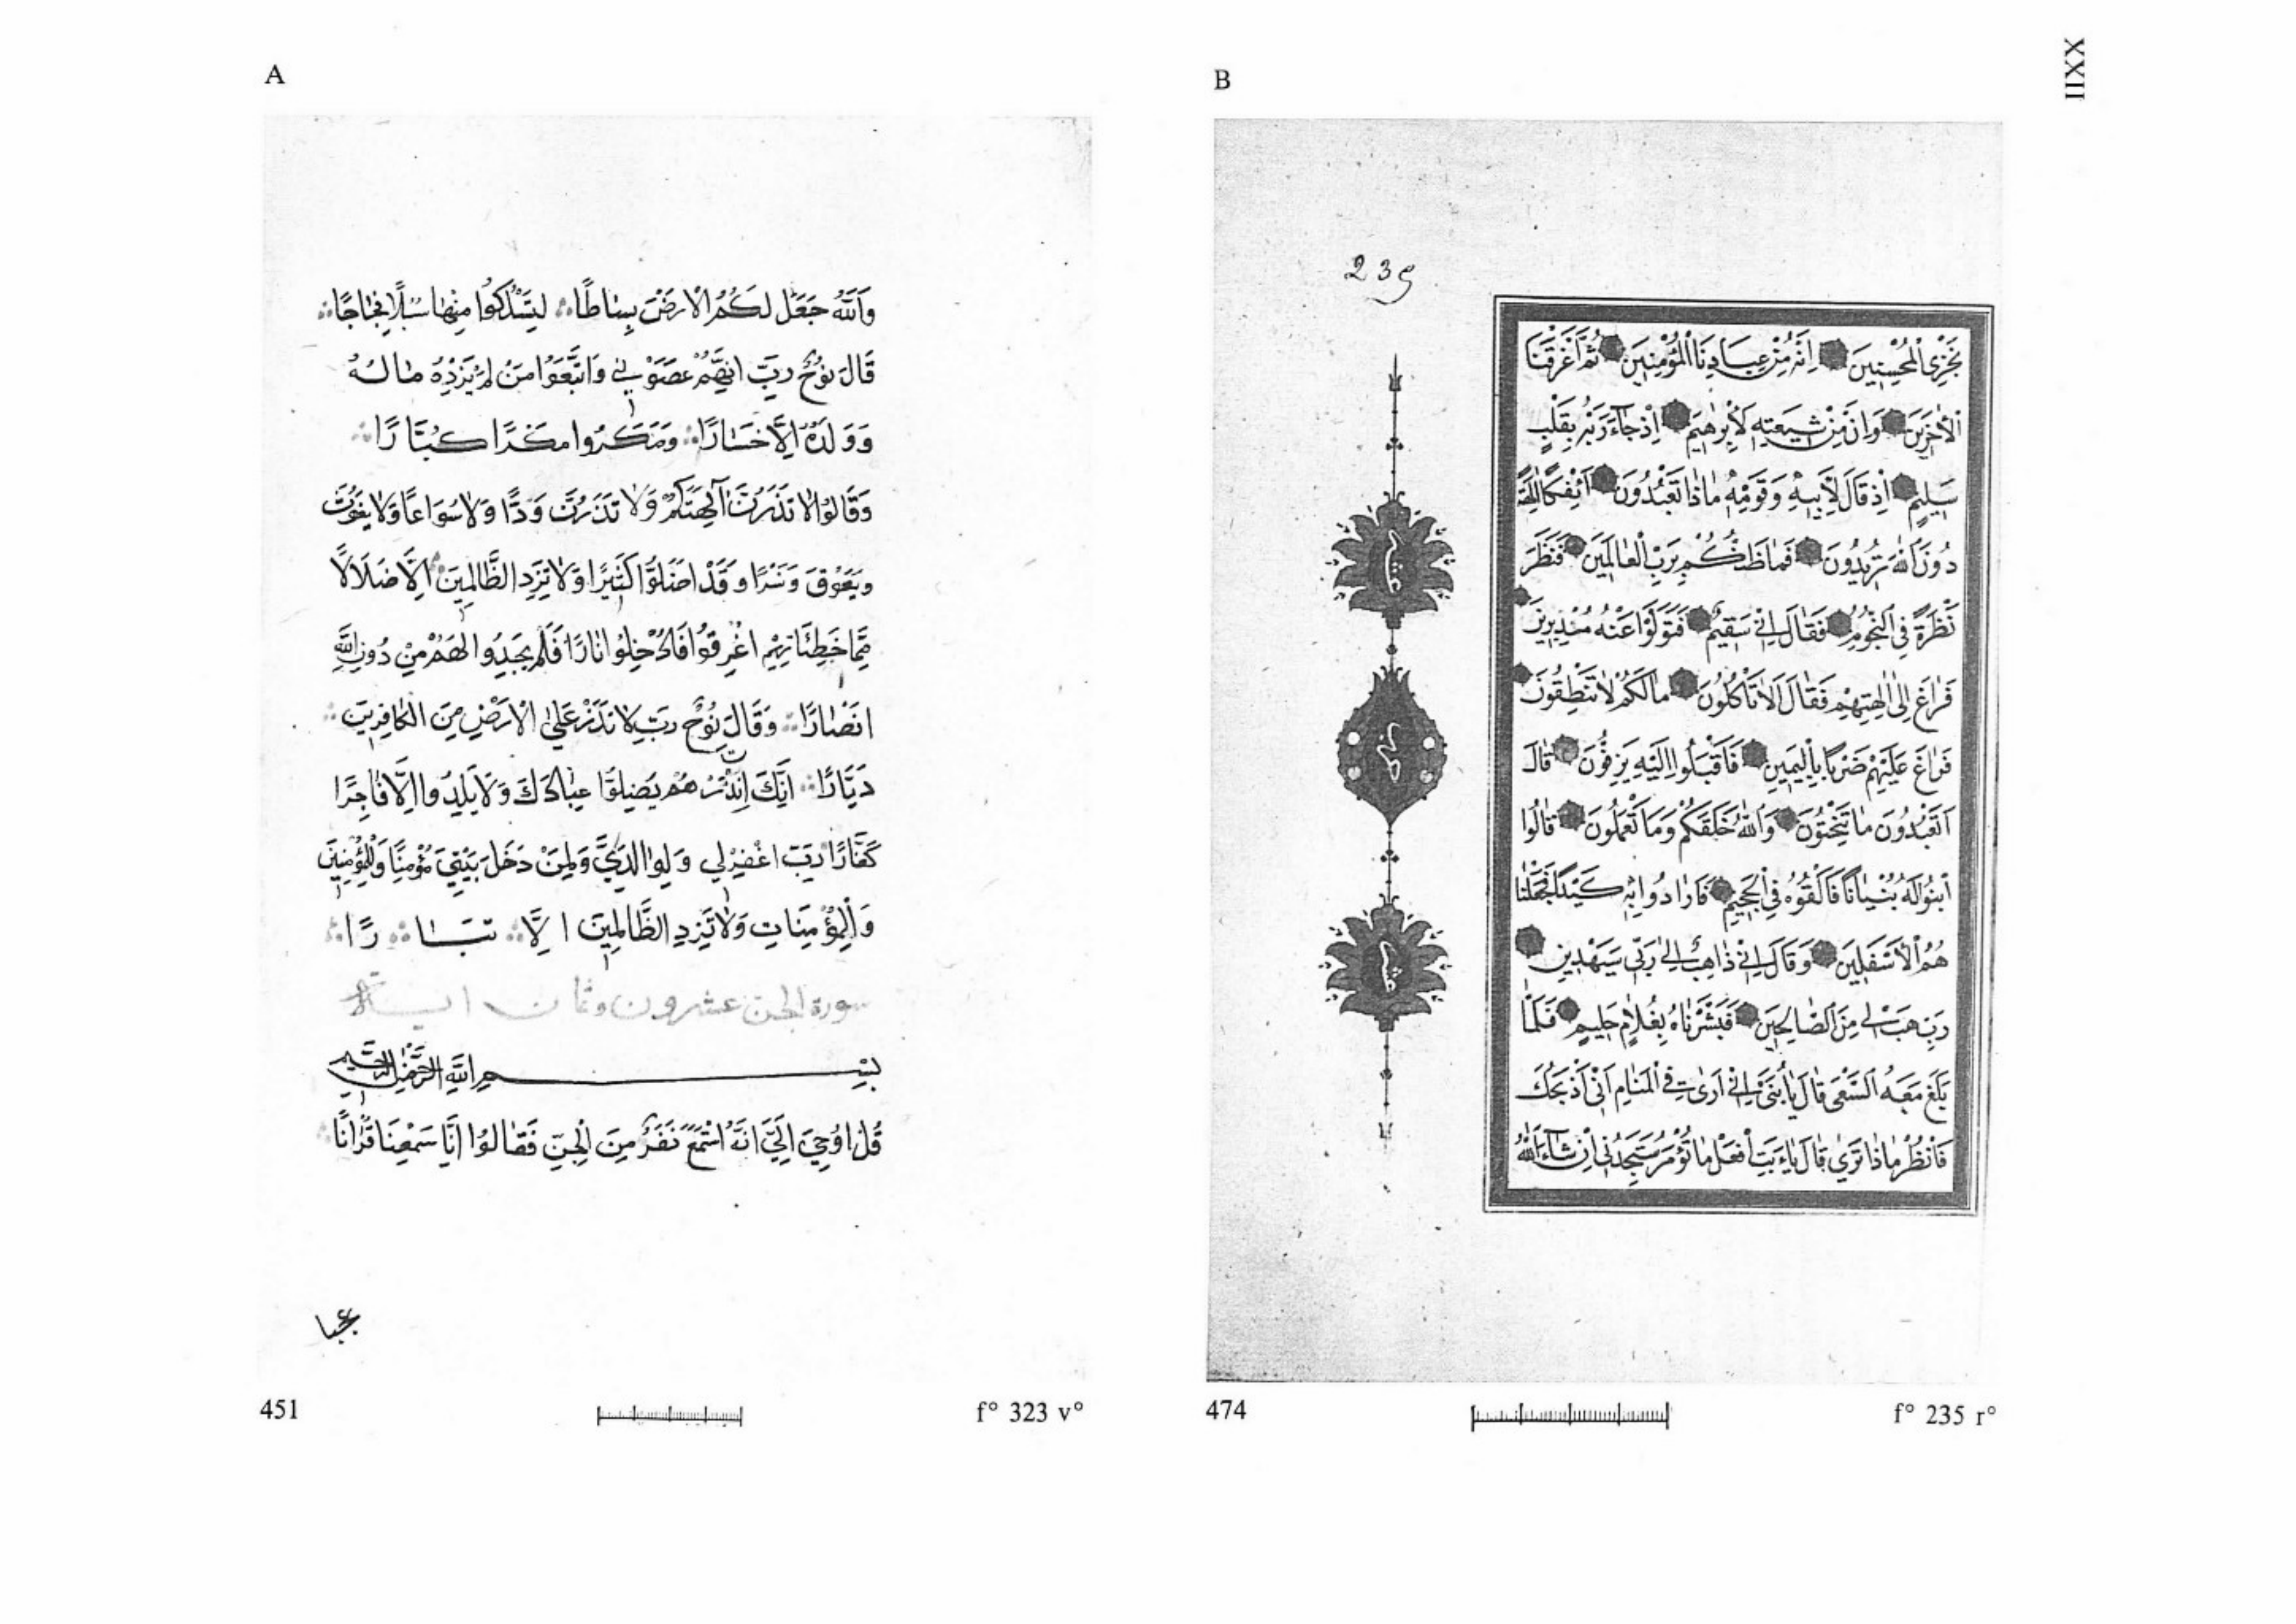 XXII
A
وَاَللّٰهُ جَعَلَ لَكُمُ الْارَضَ بِسَاطًا لِتَسْلُكُوا مِنْهَا سُبُلًا فِجَاجًا
قَالَ نوُحٌ رَبِّ انِهَّمُ عَصَوْنِي وَاتَّبَعَوُا مَنْ لَمْ يَزِدْهُ مَالُهُ
وَوَلَدُهُ اِلَّا خَسَارًا وَمَكَرُوا مَكْرًا كُبَّارًا
وَقَالوُا لَا تَذَرُنَّ آلِهَتَكُمْ وَلَا تَذَرُنَّ وَدًّا وَلَا سُوَاعًا وَلَا يَغُوثَ
وَيَعُوقَ وَنَسْرًا وَقَدْ اضَلوُّا كَثِيرًا وَلَا تَزِدِ الظَّالِمِينَ اِلَّا ضَلَالًا
مِمَّا خَطِيئَاتِهِمْ اُغْرِقوُا فَاُدْخِلوُا نَارًا فَلَمْ يَجِدُوا لَهُمْ مِنْ دُونِ اللّٰهِ
انَصْارًا وَقَالَ نُوحٌ رَبِّ لَا تَذَرْ عَلَى الْارَضِ مِنَ الكَافِرِينَ
دَيَّارًا اِنَّكَ اِنْ تَذَرْهُمْ يُضِلوُّا عِبَادَكَ وَلَا يَلِدُوا اِلَّا فَاجِرًا
كَفَّارًا رَبِّ اغْفِرْلِي وَلِوَالِدَيَّ وَلِمَنْ دَخَلَ بَيْتِيَ مُؤْمِنًا وَلِلْمُؤْمِنِينَ
وَالْمُؤْمِنَاتِ وَلَا تَزِدِ الظَّالِمِينَ اِلَّا تَبَارًا
سورة الجن عشرون وثمان ايـــة
بِسْمِ اللّٰهِ الرَّحْمٰنِ الرَّحِيمِ
قُلْ اوُحِيَ اِلَيَّ انَهَّ اسْتَمَعَ نَفَرٌ مِنَ الْجِنِّ فَقَالوُا اِنَّا سَمْعِنَا قُرْانًا
عجبا
451
f° 323 v°
B
235
نَجْزِي الْمُحْسِنِينَ اِنَّهُ مِنْ عِبَادِنَا الْمُؤْمِنِينَ ثُمَّ اَغْرَقْنَا
الْاٰخَرِينَ وَاِنَّ مِنْ شِيعَتِهِ لَاِبْرٰهِيمَ اِذْ جَاءَ رَبَّهُ بِقَلْبٍ
سَلِيمٍ اِذْ قَالَ لِاَبِيهِ وَقَوْمِهِ مَاذَا تَعْبُدُونَ اَئِفْكًا اٰلِهَةً
دُونَ اللّٰهِ تُرِيدُونَ فَمَا ظَنُّكُمْ بِرَبِّ الْعَالَمِينَ فَنَظَرَ
نَظْرَةً فِي النُّجُومِ فَقَالَ اِنِّي سَقِيمٌ فَتَوَلَّوْا عَنْهُ مُدْبِرِينَ
فَرَاغَ اِلٰى اٰلِهَتِهِمْ فَقَالَ اَلَا تَأْكُلُونَ مَا لَكُمْ لَا تَنْطِقُونَ
فَرَاغَ عَلَيْهِمْ ضَرْبًا بِالْيَمِينِ فَاَقْبَلُوا اِلَيْهِ يَزِفُّونَ قَالَ
اَتَعْبُدُونَ مَا تَنْحِتُونَ وَاللّٰهُ خَلَقَكُمْ وَمَا تَعْمَلُونَ قَالُوا
ابْنُوا لَهُ بُنْيَانًا فَاَلْقُوهُ فِي الْجَحِيمِ فَاَرَادُوا بِهِ كَيْدًا فَجَعَلْنَا
هُمُ الْاَسْفَلِينَ وَقَالَ اِنِّي ذَاهِبٌ اِلٰى رَبِّي سَيَهْدِينِ
رَبِّ هَبْ لِي مِنَ الصَّالِحِينَ فَبَشَّرْنَاهُ بِغُلَامٍ حَلِيمٍ فَلَمَّا
بَلَغَ مَعَهُ السَّعْيَ قَالَ يَا بُنَيَّ اِنِّي اَرٰى فِي الْمَنَامِ اَنِّي اَذْبَحُكَ
فَانْظُرْ مَاذَا تَرٰى قَالَ يَا اَبَتِ افْعَلْ مَا تُؤْمَرُ سَتَجِدُنِي اِنْ شَاءَ اللّٰهُ
474
f° 235 r°